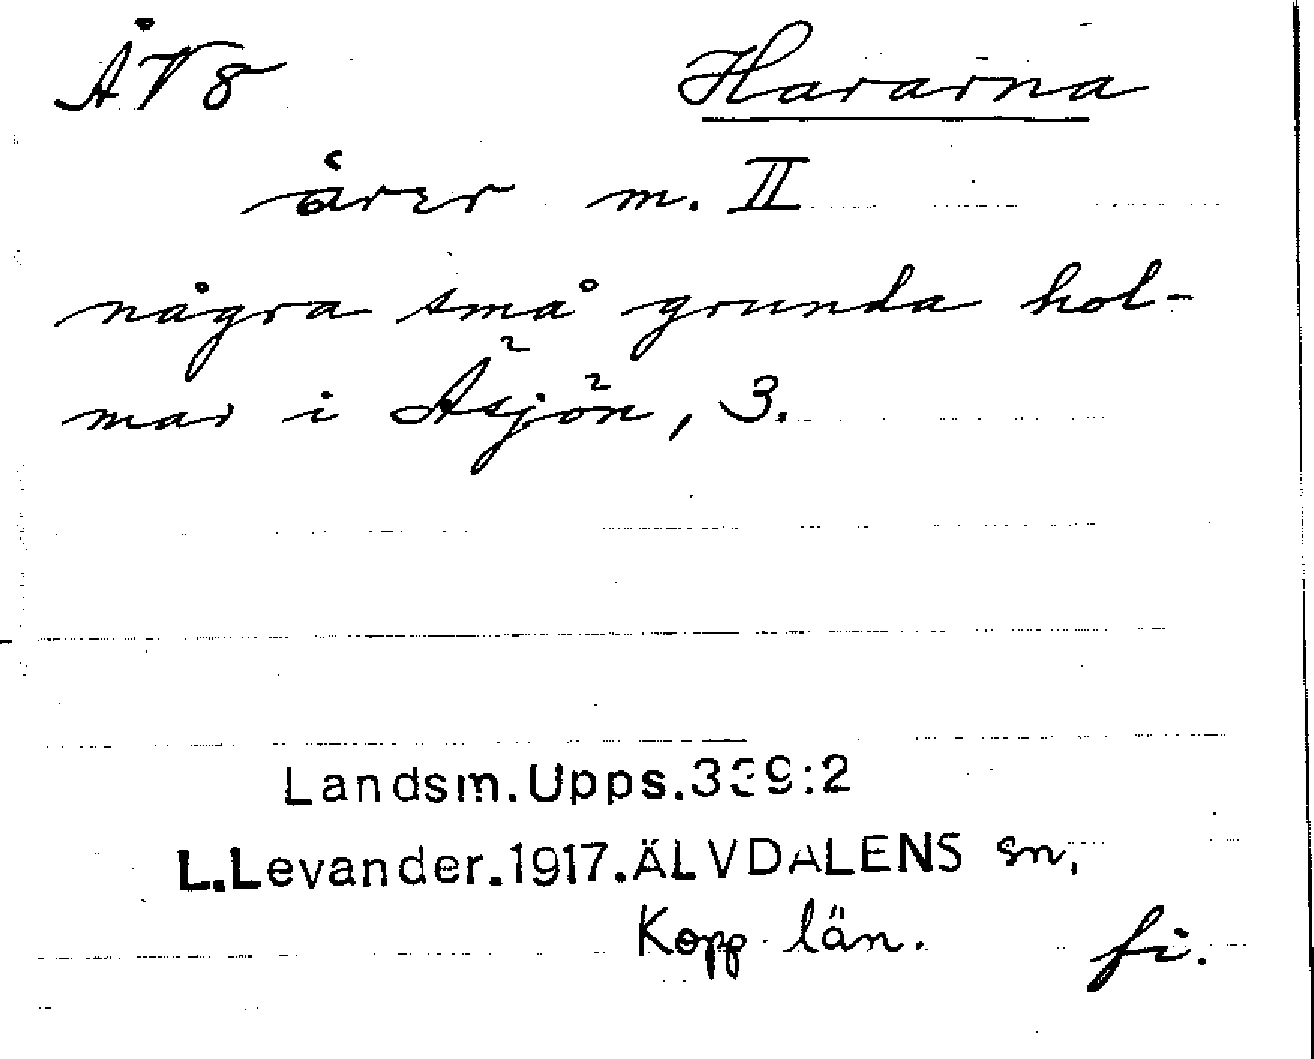 ÅV8 Hararna
àrer m. II
några små grunda hol-
mar i Åsjön, 3.
Landsm.Upps.339:2
L.Levander.1917.ÄLVDALENS sn,
Kopp. län. fi.